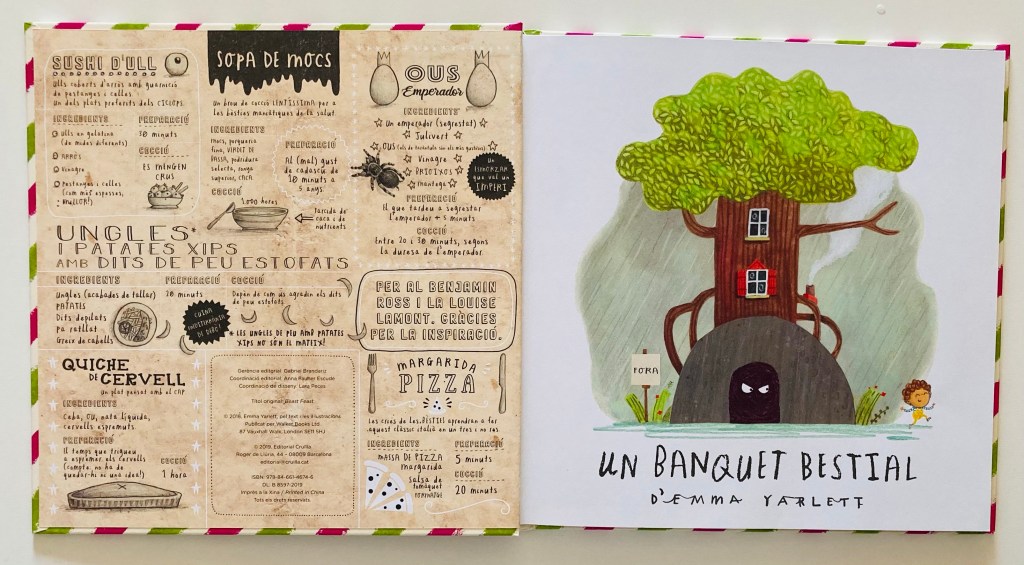 SUSHI D'ULL
Ulls coberts d'arròs amb guarnició
de pestanyes i celles.
Un dels plats preferits dels CICLOPS.
INGREDIENTS
Ulls en gelatina
(de mides diferents)
ARRÒS
Vinagre
Pestanyes i celles
(com més espesses,
MILLOR!)
PREPARACIÓ
10 minuts
COCCIÓ
ES MENGEN
CRUS
SOPA DE MOCS
Un brou de cocció LENTÍSSIMA per a
les bèsties maniàtiques de la salut.
INGREDIENTS
Mocs, porqueria
fina, VIMPOT DE
BASSA, podridura
selecta, ronya
superior, CACA
COCCIÓ
1.000 hores
PREPARACIÓ
Al (mal) gust
de cadascú de
10 minuts a
5 anys
farcida de
caca i de
nutrients
OUS
Emperador
INGREDIENTS
Un emperador (segrestat)
Julivert
OUS
Vinagre
BRIOIXOS
Mantega
Un
ESMORZAR
que val un
IMPERI
PREPARACIÓ
El que tardeu a segrestar
l'emperador + 5 minuts
COCCIÓ
Entre 20 i 30 minuts, segons
la duresa de l'emperador
UNGLES*
I PATATES XIPS
AMB DITS DE PEU ESTOFATS
INGREDIENTS
Ungles (acabades de tallar)
PATATES
Dits depilats
Pa ratllat
Greix de cabells
PREPARACIÓ
20 minuts
CUINA
INDETERMINADA
DE DUBTE!
COCCIÓ
Depèn de com us agradin els dits
de peu estofats
* LES UNGLES DE PEU AMB PATATES
XIPS NO SÓN EL MATEIX!
PER AL BENJAMIN
ROSS I LA LOUISE
LAMONT. GRÀCIES
PER LA INSPIRACIÓ.
QUICHE
DE CERVELL
Un plat pensat amb el CAP
INGREDIENTS
Ceba, OU, nata líquida,
cervells espremuts.
PREPARACIÓ
El temps que trigueu
a esprémer els cervells
(compte, no ha de
quedar-hi ni una idea!)
COCCIÓ
1 hora
Gerència editorial: Gabriel Brandariz
Coordinació editorial: Anna Fauster Escudé
Coordinació de disseny: Lara Peces
Títol original: Beast Feast
© 2019, Emma Yarlett, pel text i les il·lustracions
Publicat per Walker Books Ltd.
87 Vauxhall Walk, London SE11 5HJ
© 2019, Editorial Cruïlla
Roger de Llúria, 44 - 08009 Barcelona
editorialcruilla.cat
ISBN: 978-84-661-4674-6
DL: B 8597-2019
Imprès a la Xina / Printed in China
Tots els drets reservats
MARGARIDA
PIZZA
Les cries de les BÈSTIES aprendran a fer
aquest clàssic italià en un tres i no res.
INGREDIENTS
MASSA DE PIZZA
margarida
salsa de
tomàquet
FORMATGE
PREPARACIÓ
5 minuts
COCCIÓ
20 minuts
FORA
UN BANQUET BESTIAL
D'EMMA YARLETT